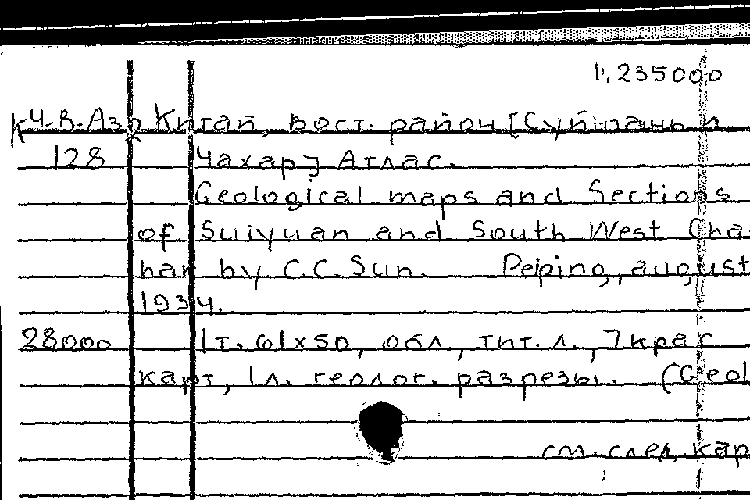 1:235000
КЧ-В.Аз Китай, вост. район [Суйюань и
128 Чахар] Атлас.
Geological maps and Sections
of Suiyuan and South West Cha-
har by C.C. Sun. Peiping, august
1934.
28000 1т. 61x50, обл., тит. л., 7 крас
карт, 1л. геолог. разрезы. (Geol
см. след. кар